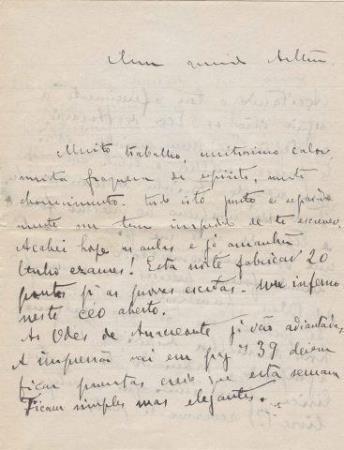 Meu querido Arthur.
Muito trabalho, muitissimo calor
muita fraqueza de espirito, muito
aborrecimento. tudo isto junto e separada
mente me tem impedido de te escrever.
Acabei hoje as aulas e já amanhã
tenho exames! Esta noite fabricar 20
pontos p/ as provas escritas. Um inferno
neste céo aberto.
As Odes de Anacreonte já vão adiantadas,
A impressão vai em pag. 39 devem
ficar promptas creio que esta semana
Ficam simples mas elegantes.